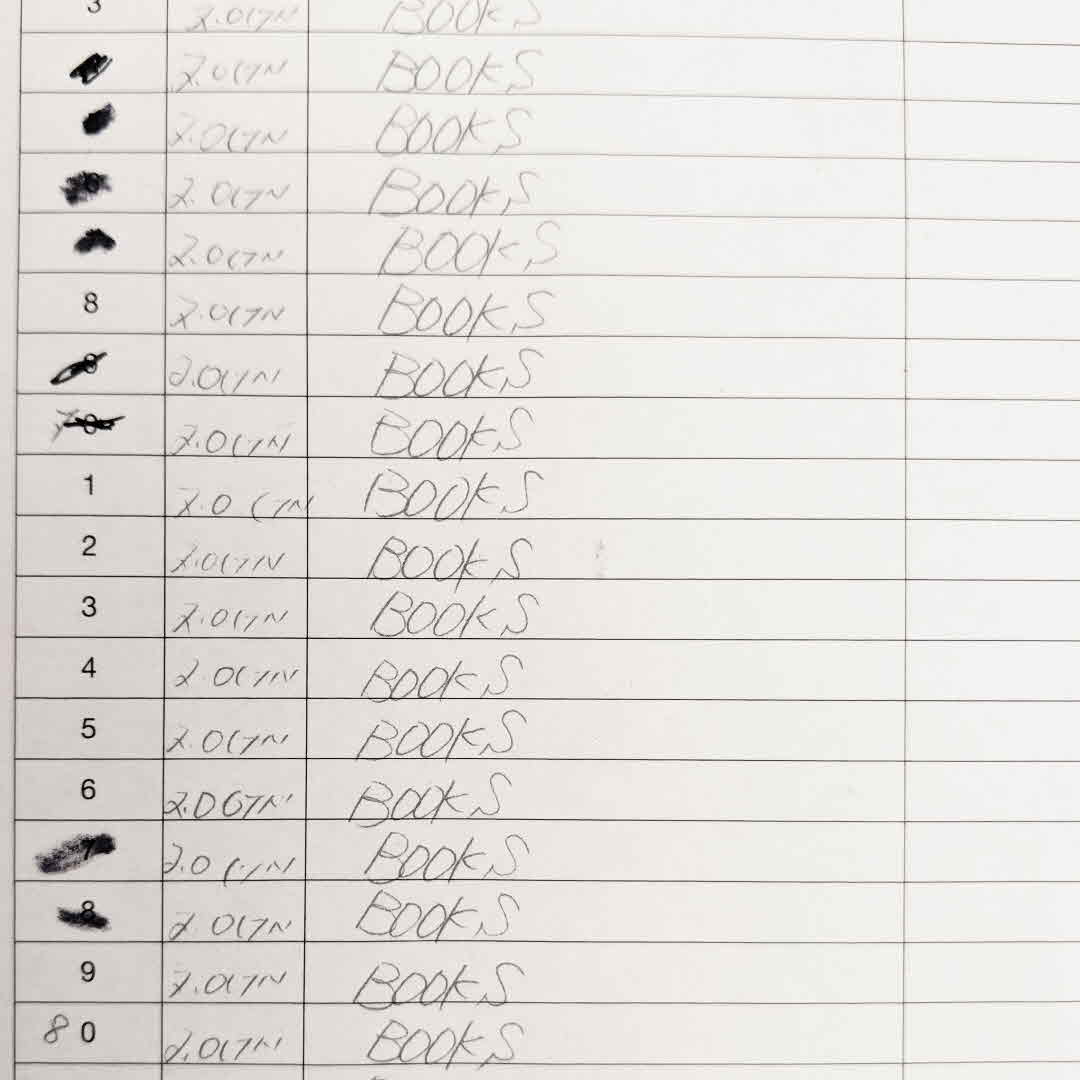 3 2.0CTN BOOKS
2.0CTN BOOKS
2.0CTN BOOKS
2.0CTN BOOKS
2.0CTN BOOKS
8 2.0CTN BOOKS
2.0CTN BOOKS
70 2.0CTN BOOKS
1 2.0CTN BOOKS
2 2.0CTN BOOKS
3 2.0CTN BOOKS
4 2.0CTN BOOKS
5 2.0CTN BOOKS
6 2.0CTN BOOKS
7 2.0CTN BOOKS
8 2.0CTN BOOKS
9 2.0CTN BOOKS
80 2.0CTN BOOKS